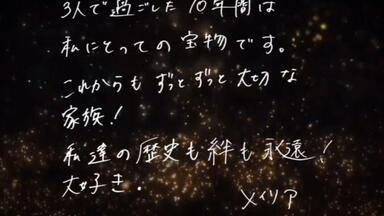 3人で過ごした10年間は
私にとっての宝物です。
これからもずっとずっと大切な
家族!
私達の歴史も絆も永遠!
大好き.
メイリア